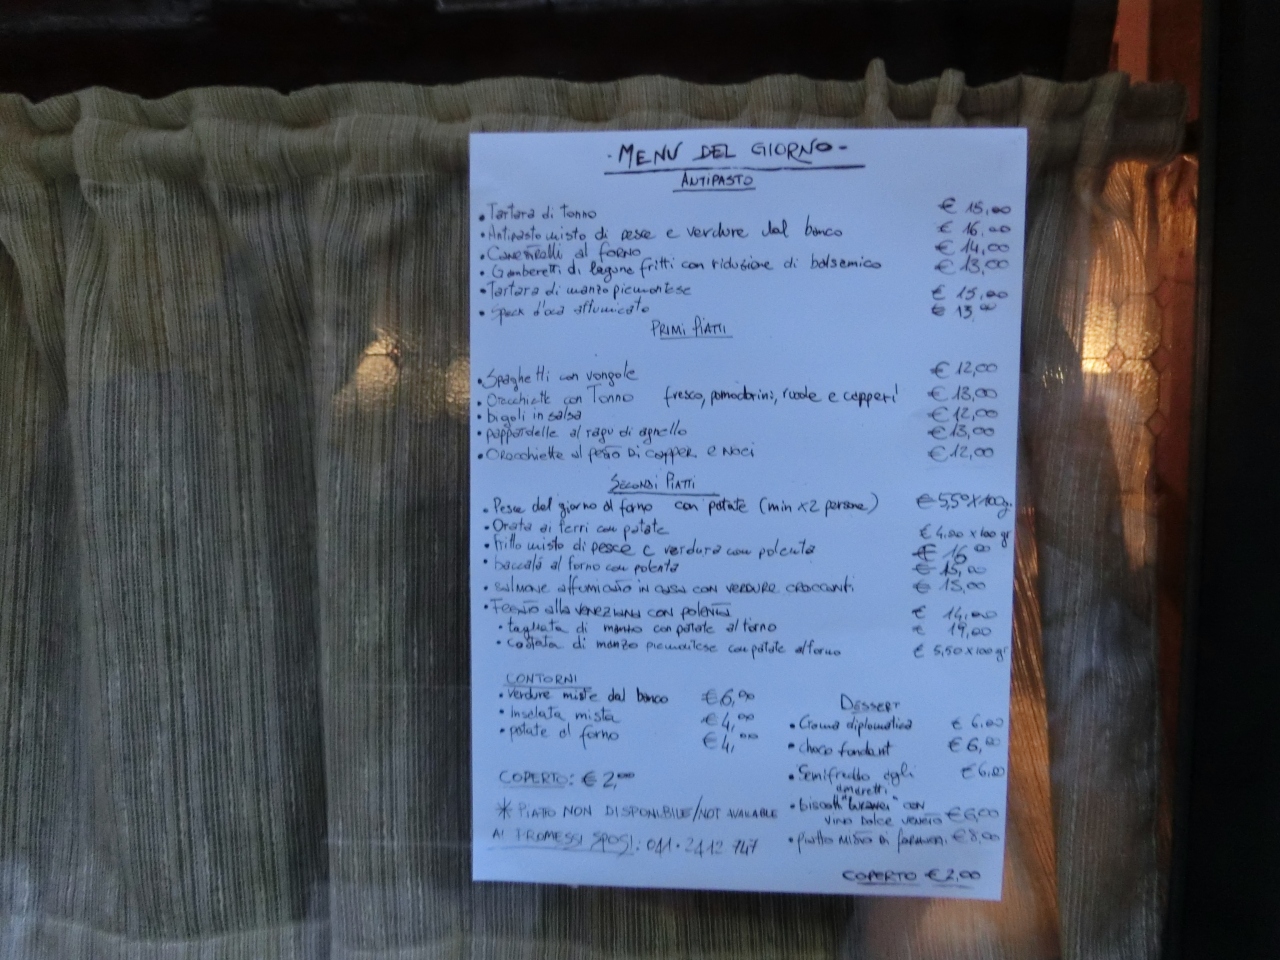 - MENU DEL GIORNO -
ANTIPASTO
• Tartara di tonno € 15,00
• Antipasto misto di pesce e verdure dal banco € 16,00
• Canestrelli al forno € 14,00
• Gamberetti di laguna fritti con riduzione di balsamico € 13,00
• Tartara di manzo piemontese € 15,00
• Speck d'oca affumicato € 13,00
PRIMI PIATTI
• Spaghetti con vongole € 12,00
• Orecchiette con Tonno fresco, pomodorini, rucole e capperi € 13,00
• bigoli in salsa € 12,00
• pappardelle al ragù di agnello € 13,00
• Orecchiette al pesto di capperi e noci € 12,00
SECONDI PIATTI
• Pesce del giorno al forno con patate (min x2 persone) € 5,50 x 100g.
• Orata ai ferri con patate € 4.20 x 100 gr
• fritto misto di pesce e verdura con polenta € 16,00
• baccalà al forno con polenta € 15,00
• SALMONE affumicato in casa con verdure croccanti € 15,00
• Fegato alla veneziana con polenta € 14,00
• tagliata di manzo con patate al forno € 19,00
• costata di manzo piemontese con patate al forno € 5,50 x 100 gr
CONTORNI
• verdure miste dal banco € 6,00
• Insalata mista € 4,00
• patate al forno € 4,00
COPERTO: € 2,00
* PIATTO NON DISPONIBILE/NOT AVAILABLE
AI PROMESSI SPOSI: 041 • 2412 747
DESSERT
• Crema diplomatica € 6.00
• choco fondant € 6,00
• Semifreddo agli amaretti € 6.00
• biscotti "buranei" con
vino dolce veneto € 6,00
• piatto misto di formaggi € 8,00
COPERTO € 2,00